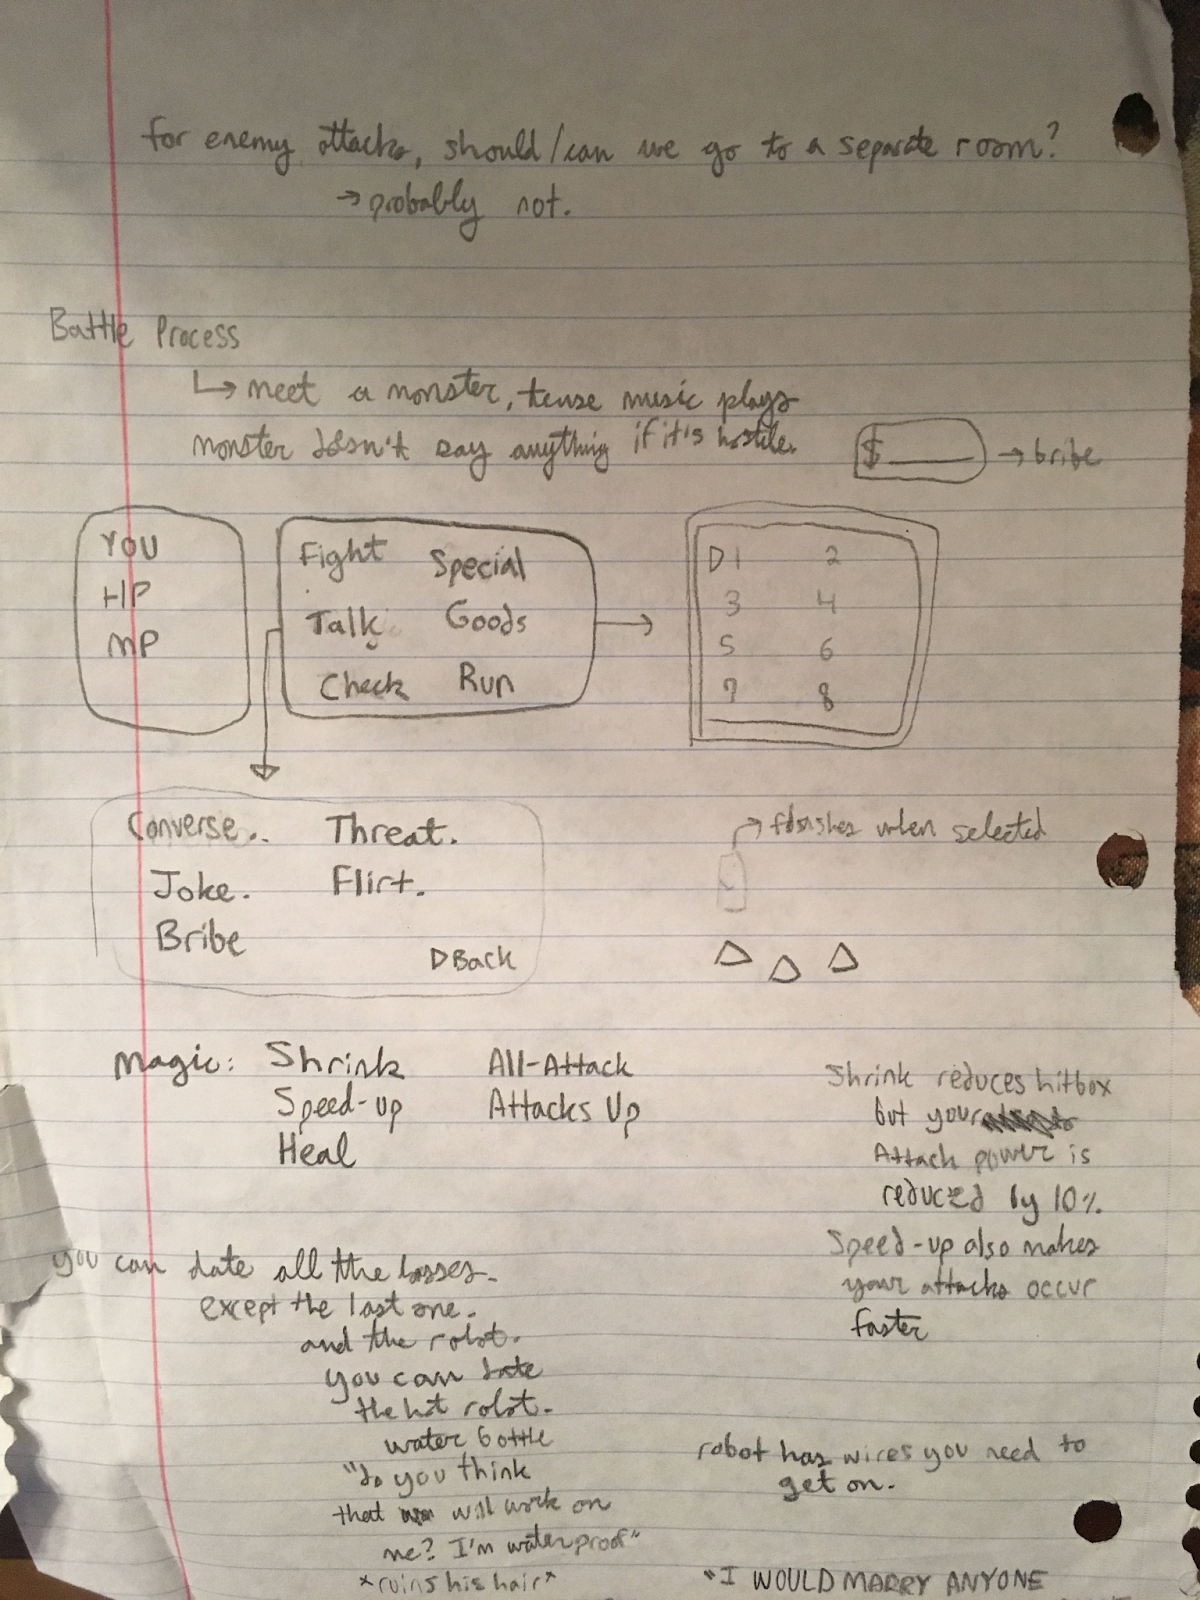 for enemy attacks, should/can we go to a separate room?
→ probably not.
Battle Process
↳ meet a monster, tense music plays
monster doesn't say anything if it's hostile.
$ ____ → bribe
YOU
HP
MP
Fight Special
Talk Goods
Check Run
▷ 1 2
3 4
5 6
7 8
Converse.. Threat.
Joke. Flirt.
Bribe
▷Back
→ when selected
Magic: Shrink All-Attack
Speed-up Attacks Up
Heal
Shrink reduces hitbox
but your
Attack power is
reduced by 10%.
Speed-up also makes
your attacks occur
faster
you can date all the bosses.
except the last one.
and the robot.
you can date
the hot robot.
water bottle
"do you think
that will work on
me? I'm waterproof"
*ruins his hair*
robot has wires you need to
get on.
"I WOULD MARRY ANYONE